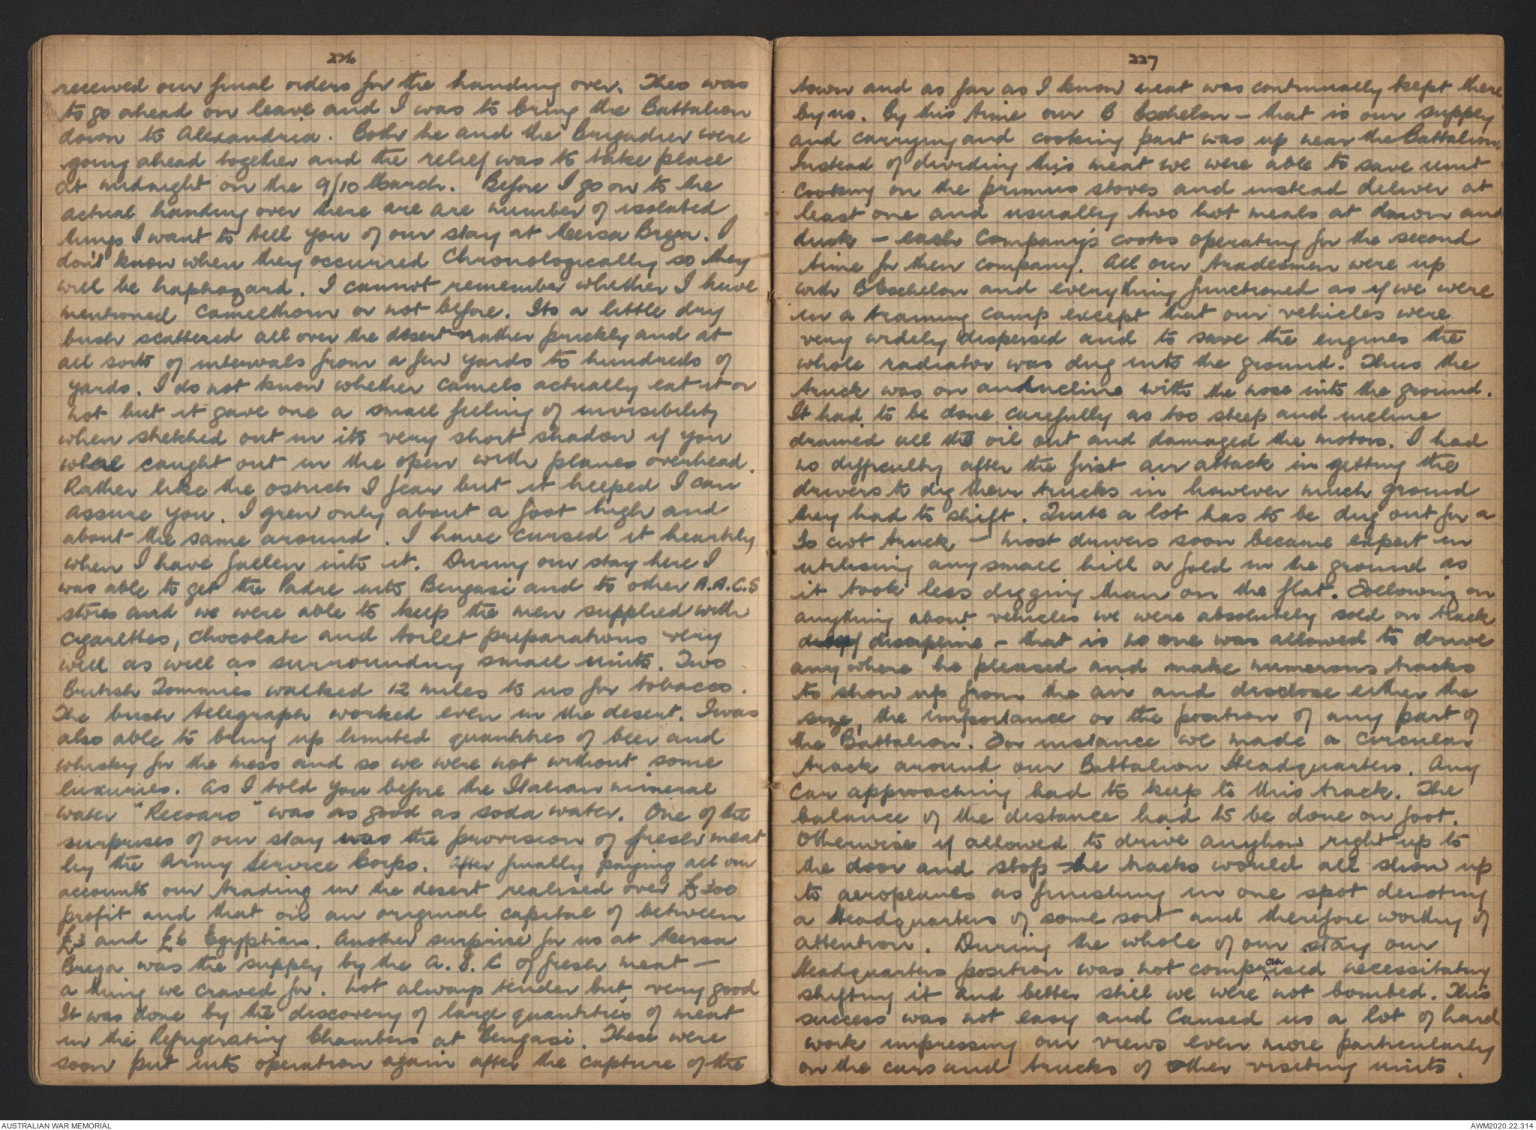 226
received our final orders for the handing over. Theo was
to go ahead on leave and I was to bring the Battalion
down to Alexandria. Both he and the Brigadier were
going ahead together and the relief was to take place
at midnight on the 9/10 March. Before I go on to the
actual handing over there are are number of isolated
things I want to tell you of our stay at Mersa Brega. I
don't know when they occurred chronologically so they
will be haphazard. I cannot remember whether I have
mentioned camelthorn or not before. Its a little dry
bush scattered all over the desert rather prickly and at
all sorts of intervals from a few yards to hundreds of
yards. I do not know whether camels actually eat it or
not but it gave one a small feeling of invisibility
when stretched out in its very short shadow if you
were caught out in the open with planes overhead.
Rather like the ostrich I fear but it helped I can
assure you. I grew only about a foot high and
about the same around. I have cursed it heartily
when I have fallen into it. During our stay here I
was able to get the Padre into Bengasi and to other A.A.C.S
stores and we were able to keep the men supplied with
cigarettes, chocolate and toilet preparations very
well as well as surrounding small units. Two
British Tommies walked 12 miles to us for tobacco.
The bush telegraph worked even in the desert. I was
also able to bring up limited quantities of beer and
whisky for the mess and so we were not without some
luxuries. As I told you before the Italian mineral
water "Recoaro" was as good as soda water. One of the
surprises of our stay was the provision of fresh meat
by the Army Service Corps. After finally paying all our
accounts our trading in the desert realised over £300
profit and that on an original capital of between
£3 and £6 Egyptian. Another surprise for us at Mersa
Brega was the supply by the A.S.C of fresh meat -
a thing we craved for. Not always tender but very good
It was done by the discovery of large quantities of meat
in the Refrigerating Chambers at Bengasi. These were
soon put into operation again after the capture of the
227
town and as far as I know meat was continually kept there
by us. By this time our B Echelon - that is our supply
and carrying and cooking part was up near the Battalion
Instead of dividing this meat we were able to save unit
cooking on the primus stoves and instead deliver at
least one and usually two hot meals at dawn and
dusk - each Company's cooks operating for the second
time for their company. All our tradesmen were up
with B Echelon and everything functioned as if we were
in a training camp except that our vehicles were
very widely dispersed and to save the engines the
whole radiator was dug into the ground. Thus the
truck was on an incline with the nose into the ground.
It had to be done carefully as too steep and incline
drained all the oil out and damaged the motors. I had
no difficulty after the first air attack in getting the
drivers to dig their trucks in however much ground
they had to shift. Quite a lot has to be dug out for a
30 cwt truck - most drivers soon became expert in
utilising any small hill a fold in the ground as
it took less digging than on the flat. Following on
anything about vehicles we were absolutely sold on track
discipline - that is no one was allowed to drive
anywhere he pleased and make numerous tracks
to show up from the air and disclose either the
size, the importance or the position of any part of
the Battalion. For instance we made a circular
track around our Battalion Headquarters. Any
car approaching had to keep to this track. The
balance of the distance had to be done on foot.
Otherwise if allowed to drive anyhow right up to
the door and stop the tracks would all show up
to aeroplanes as finishing in one spot denoting
a Headquarters of some sort and therefore worthy of
attention. During the whole of our stay our
Headquarters position was not compromised necessitating
shifting it and better still we were not bombed. This
success was not easy and caused us a lot of hard
work impressing our views even more particularly
on the cars and trucks of other visiting units.
AUSTRALIAN WAR MEMORIAL
AWM2020.22.314